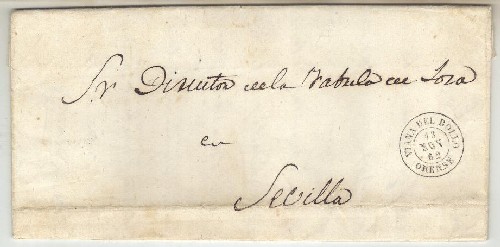 Sr Director de la Fabrica de Loza
en
Sevilla
VIANA DEL BOLLO
13
NOV
62
ORENSE